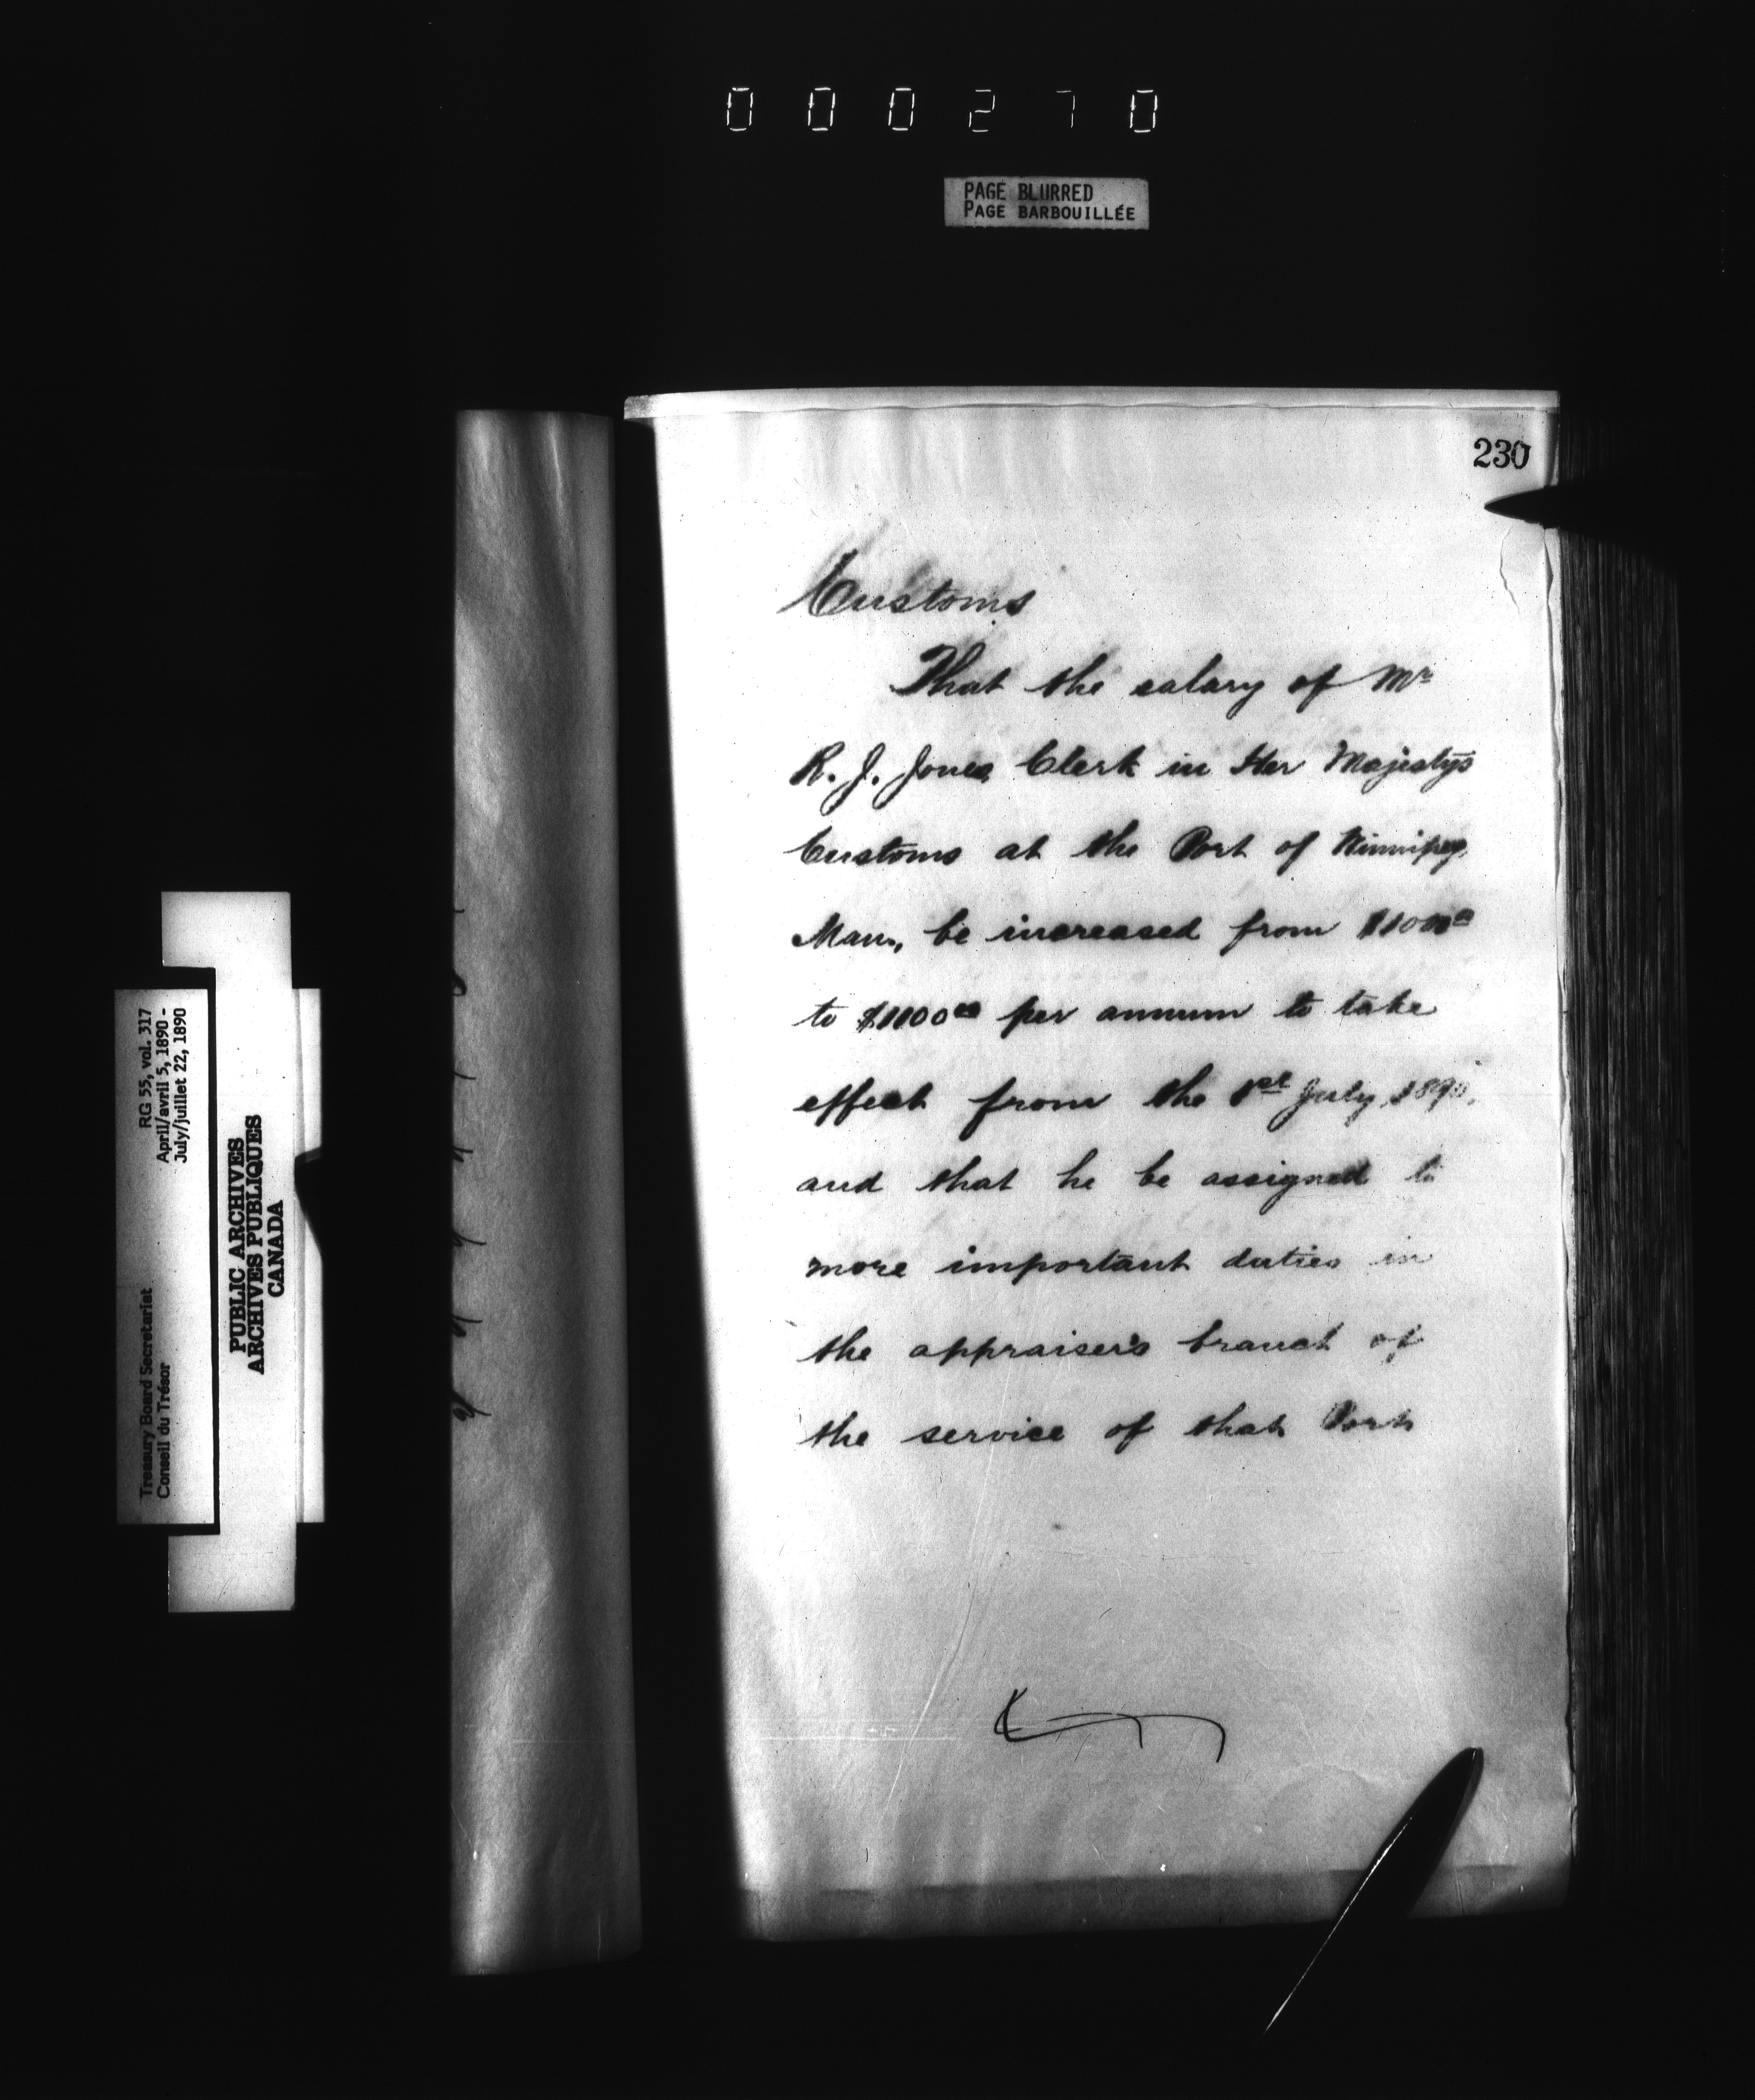 000270
PAGE BLURRED
PAGE BARBOUILLÉE
230
Customs
That the salary of Mr
R. J. Jones Clerk in Her Majestys
Customs at the Port of Winnipeg
Man, be increased from $1000⁰⁰
to $1100⁰⁰ per annum to take
effect from the 1st July 1890,
and that he be assigned to
more important duties in
the appraisers branch of
the service of that Port
Treasury Board Secretariat RG 55, vol. 317
Conseil du Trésor April/avril 5, 1890 -
July/juillet 22, 1890
PUBLIC ARCHIVES
ARCHIVES PUBLIQUES
CANADA